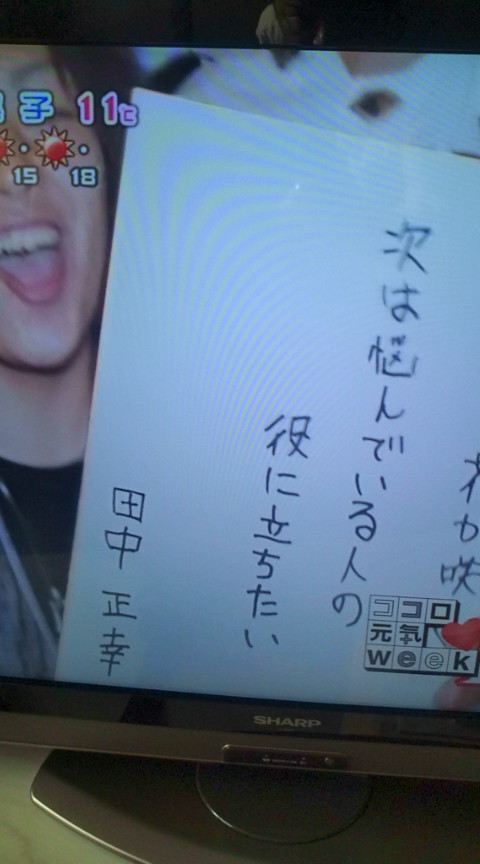 子 11℃
15 18
次は悩んでいる人の
役に立ちたい
田中 正幸
ココロ
元氣
week
SHARP